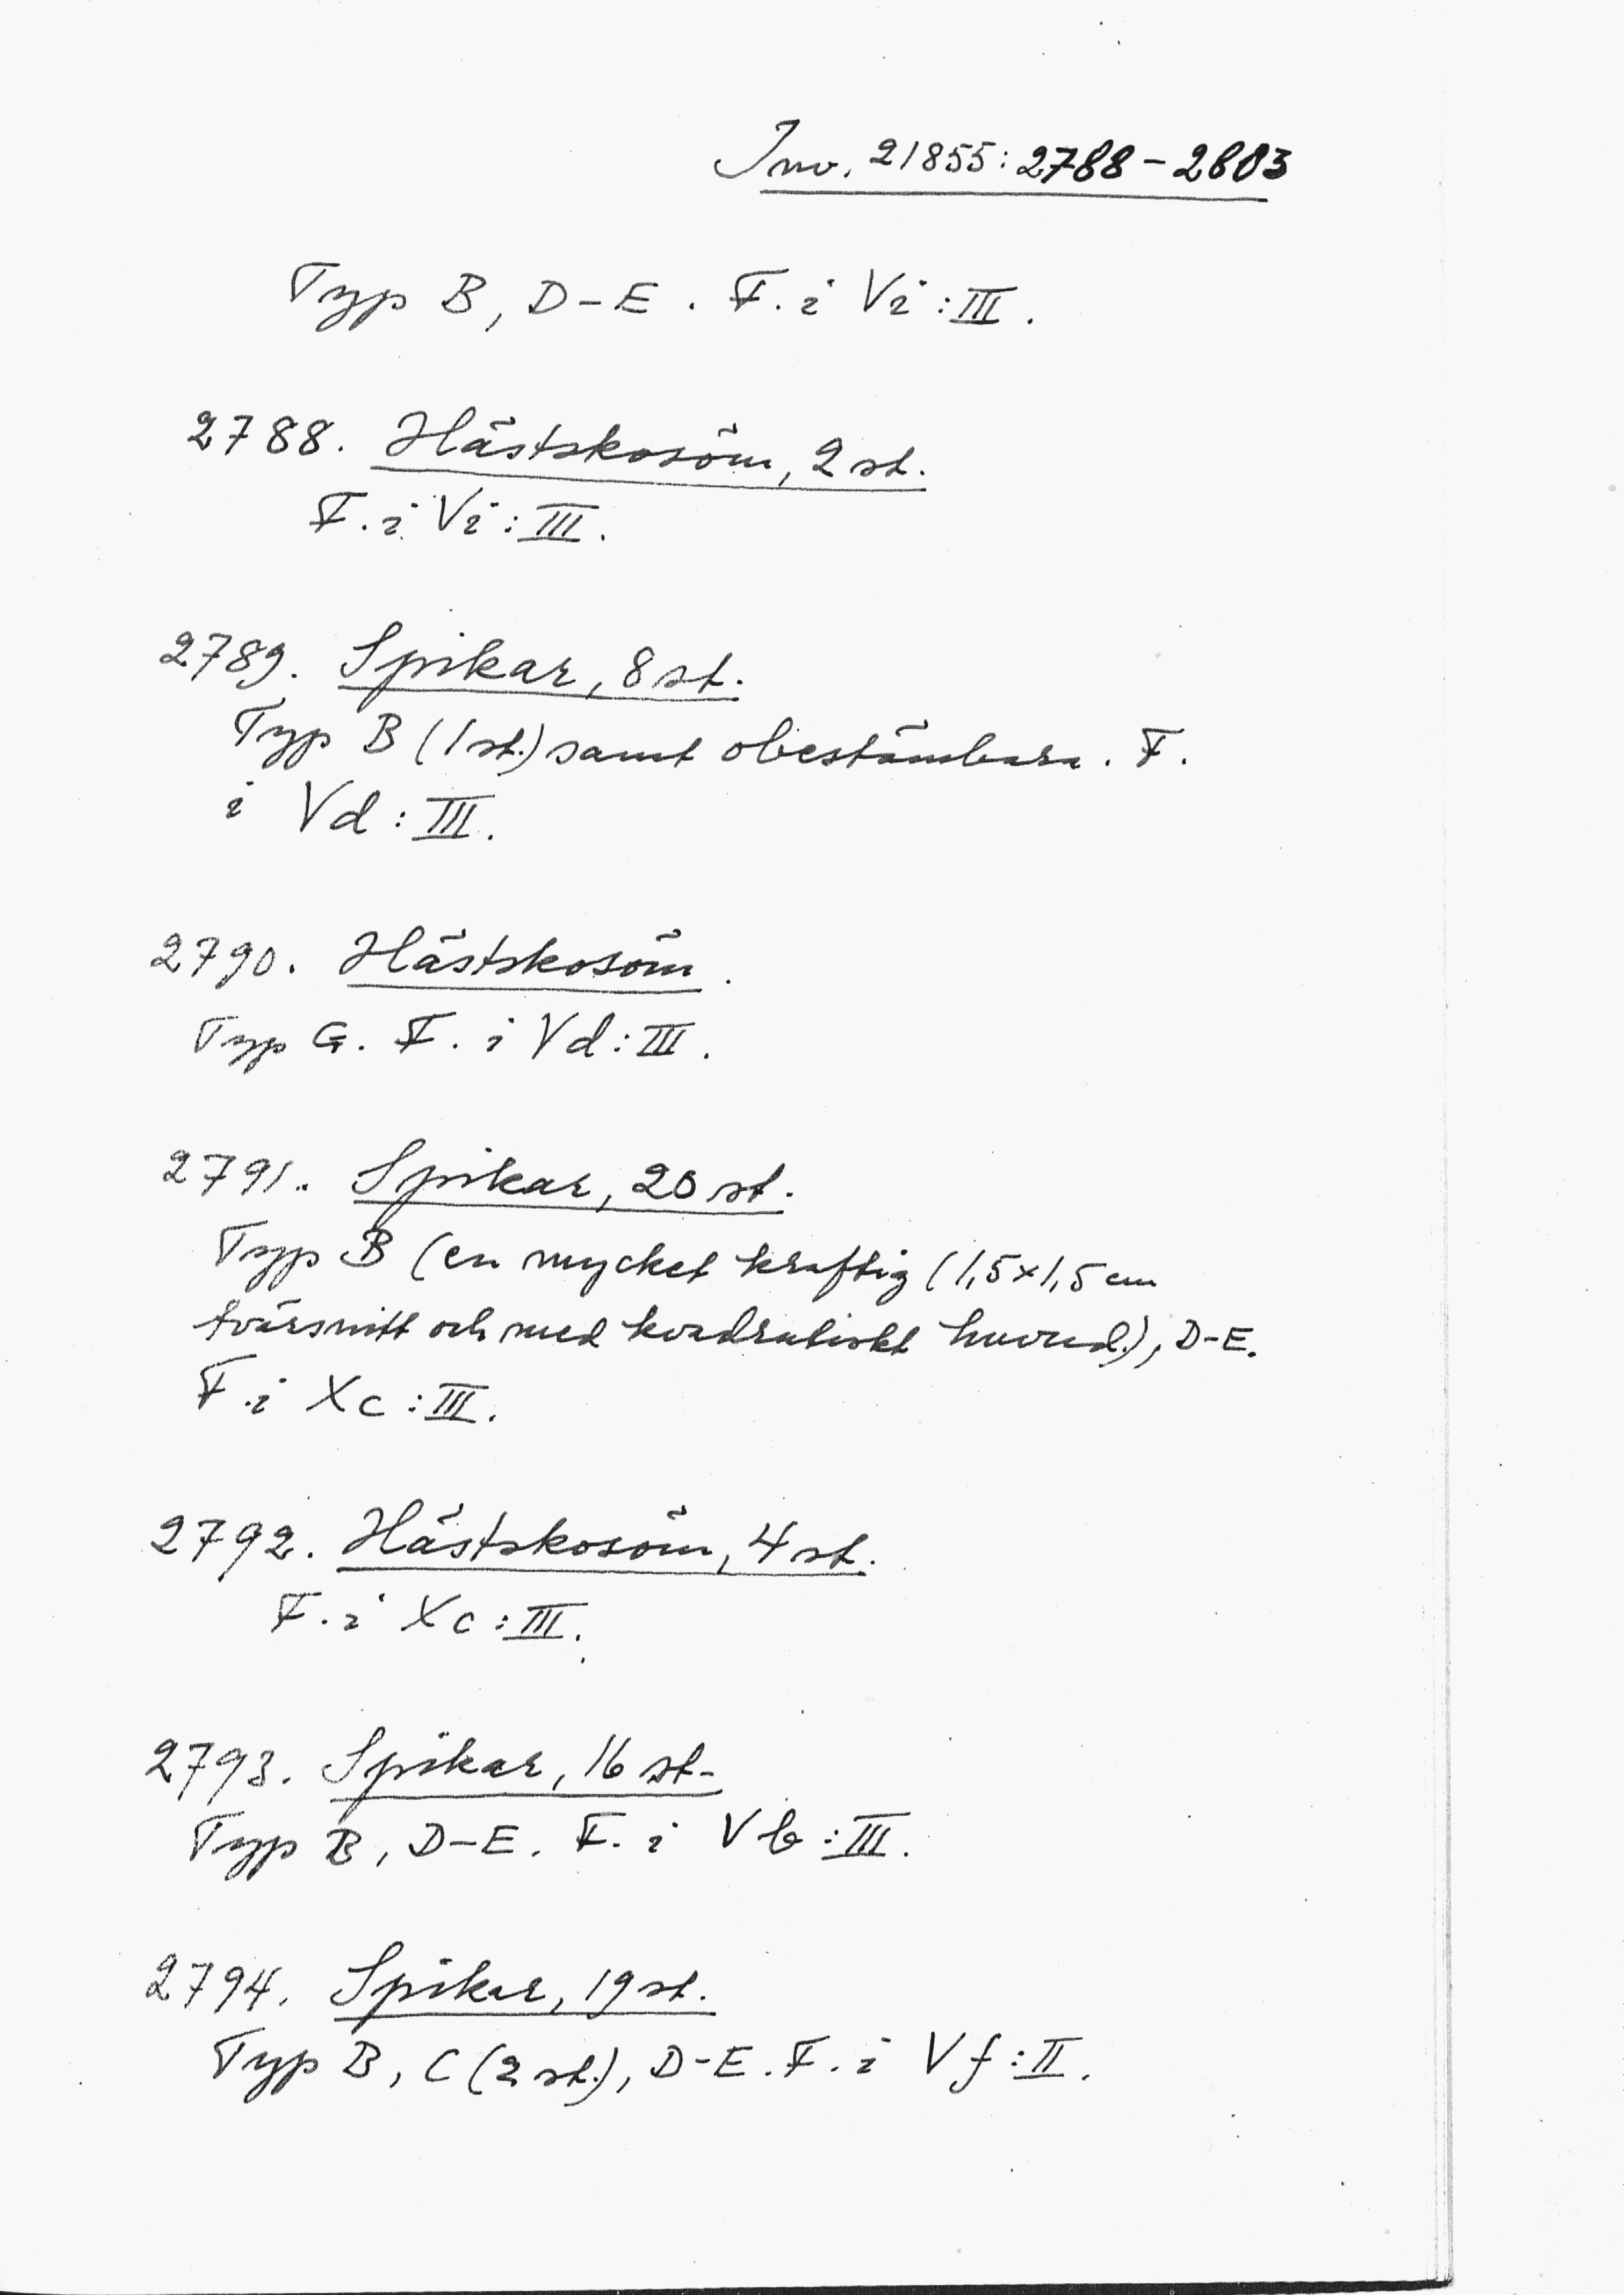 Inv. 21855:2788-2803
Typ B, D-E. F. i Vi:III.
2788. Hästskosöm, 2 st.
F. i Vi:III.
2789. Spikar, 8 st.
Typ B (1 st.) samt obestämbara. F.
i Vd:III.
2790. Hästskosöm.
Typ G. F. i Vd:III.
2791. Spikar, 20 st.
Typ B (en mycket kraftig (1,5×1,5 cm
tvärsnitt och med kvadratiskt huvud), D-E.
F. i Xc:III.
2792. Hästskosöm, 4 st.
F. i Xc:III.
2793. Spikar, 16 st.
Typ B, D-E. F. i Vb:III.
2794. Spikar, 19 st.
Typ B, C (2 st.), D-E. F. i Vf:II.